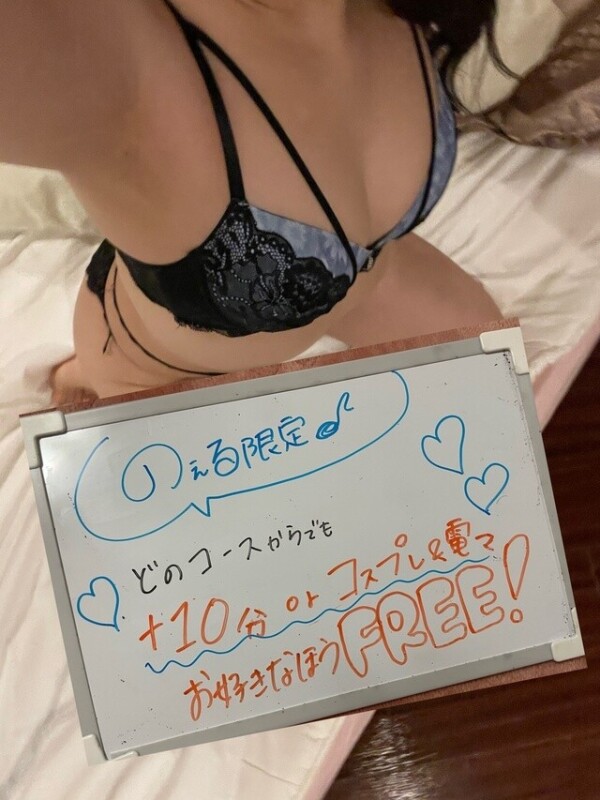 のぇる限定♪
どのコースからでも
+10分 or コスプレ&電マ
お好きなほうFREE!